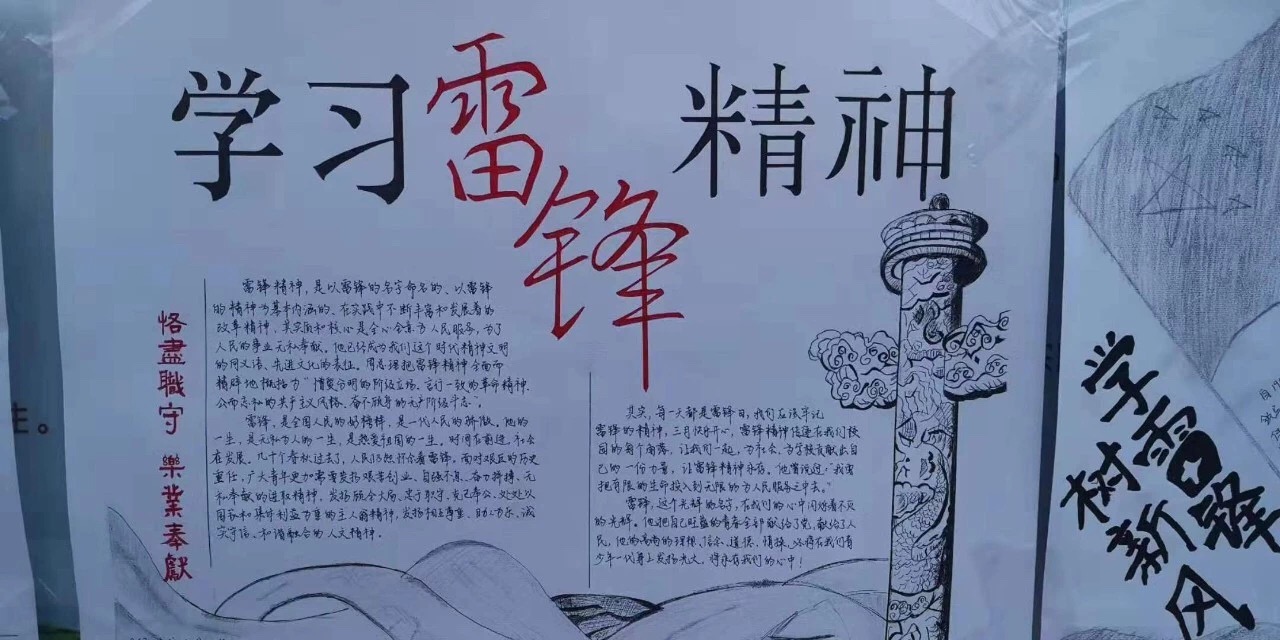 学习雷锋精神
恪盡職守 樂業奉獻
雷锋精神，是以雷锋的名字命名的、以雷锋
的精神为基本内涵的、在实践中不断丰富和发展着的
改革精神，其实质和核心是全心全意为人民服务，为了
人民的事业无私奉献，他已经成为我们这个时代精神文明
的同义语、先进文化的表征。周总理把雷锋精神全面而
精辟地概括为“憎爱分明的阶级立场、言行一致的革命精神、
公而忘私的共产主义风格、奋不顾身的无产阶级斗志”。
雷锋，是全国人民的好榜样，是一代人民的骄傲。他的
一生，是无私为人的一生，是热爱祖国的一生。时间在前进，社会
在发展。几十个春秋过去了，人民仍然怀念着雷锋。面对艰巨的历史
重任，广大青年更加需要发扬艰苦创业、自强不息、奋力拼搏、无
私奉献的进取精神，发扬顾全大局、忠于职守、克己奉公、处处以
国家和集体利益为重的主人翁精神，发扬相互尊重、助人为乐、诚
实守信、和谐融合的人文精神。
其实，每一天都是雷锋日，我们应该牢记
雷锋的精神，三月份开心，雷锋精神传遍在我们校
园的每个角落，让我们一起，为社会、为学校贡献出自
己的一份力量，让雷锋精神永存。他曾说过，“我要
把有限的生命投入到无限的为人民服务之中去。”
雷锋，这个光辉的名字，在我们的心中闪烁着不灭
的光辉。他把自己旺盛的青春全部献给了党，献给了人
民，他的高尚的理想、信念、道德、情操，必将在我们青
少年一代身上发扬光大，将永存我们的心中！
学雷锋
树新风
生。